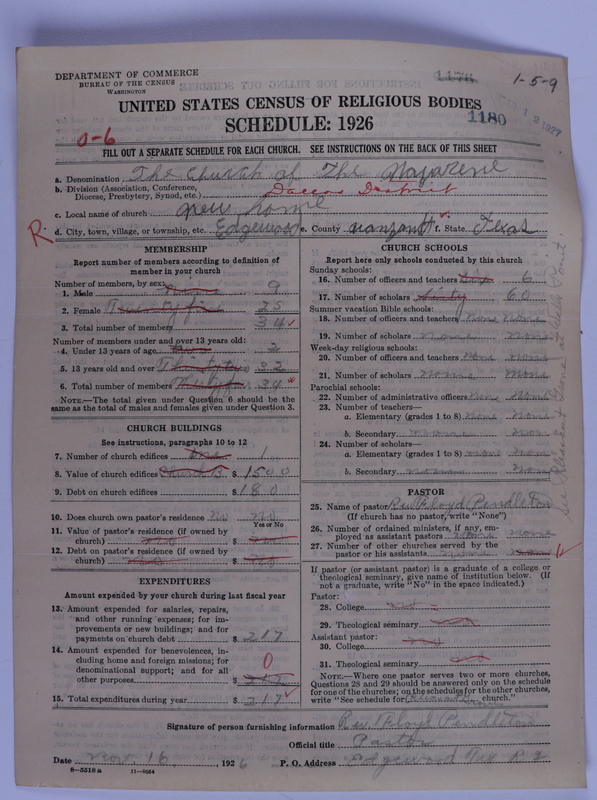 DEPARTMENT OF COMMERCE
BUREAU OF THE CENSUS
WASHINGTON
1176
1-5-9
UNITED STATES CENSUS OF RELIGIOUS BODIES
SCHEDULE: 1926
1180
0-6
FILL OUT A SEPARATE SCHEDULE FOR EACH CHURCH. SEE INSTRUCTIONS ON THE BACK OF THIS SHEET
a. Denomination The Church of The Nazarene
b. Division (Association, Conference,
Diocese, Presbytery, Synod, etc.) District
c. Local name of church
R.
d. City, town, village, or township, etc. Edgewood e. County vanzandt f. State Texas
MEMBERSHIP
Report number of members according to definition of
member in your church
Number of members, by sex:
1. Male 9
2. Female 25
3. Total number of members 34
Number of members under and over 13 years old:
4. Under 13 years of age 2
5. 13 years old and over 32
6. Total number of members 34
NOTE.—The total given under Question 6 should be the
same as the total of males and females given under Question 3.
CHURCH BUILDINGS
See instructions, paragraphs 10 to 12
7. Number of church edifices 1
8. Value of church edifices $ 1500
9. Debt on church edifices $ 180
10. Does church own pastor's residence no no
Yes or No
11. Value of pastor's residence (if owned by
church) $
12. Debt on pastor's residence (if owned by
church) $
EXPENDITURES
Amount expended by your church during last fiscal year
13. Amount expended for salaries, repairs,
and other running expenses; for im-
provements or new buildings; and for
payments on church debt $ 217
14. Amount expended for benevolences, in-
cluding home and foreign missions; for
denominational support; and for all
other purposes $ 0
15. Total expenditures during year $ 217
CHURCH SCHOOLS
Report here only schools conducted by this church
Sunday schools:
16. Number of officers and teachers six 6
17. Number of scholars sixty 60
Summer vacation Bible schools:
18. Number of officers and teachers none none
19. Number of scholars none none
Week-day religious schools:
20. Number of officers and teachers none none
21. Number of scholars none none
Parochial schools:
22. Number of administrative officers none none
23. Number of teachers—
a. Elementary (grades 1 to 8) none none
b. Secondary none
24. Number of scholars—
a. Elementary (grades 1 to 8) none none
b. Secondary none
PASTOR
25. Name of pastor Rev Floyd Pendleton
(If church has no pastor, write "None")
26. Number of ordained ministers, if any, em-
ployed as assistant pastors none none
27. Number of other churches served by the
pastor or his assistants
If pastor (or assistant pastor) is a graduate of a college or
theological seminary, give name of institution below. (If
not a graduate, write "No" in the space indicated.)
Pastor:
28. College no
29. Theological seminary no
Assistant pastor:
30. College no
31. Theological seminary no
NOTE.—Where one pastor serves two or more churches,
Questions 28 and 29 should be answered only on the schedule
for one of the churches; on the schedules for the other churches,
write "See schedule for church."
Signature of person furnishing information Rev Floyd Pendleton
Official title Pastor
Date Nov. 16, 1926 P. O. Address Edgewood Tex
8—5518 a 11—8664